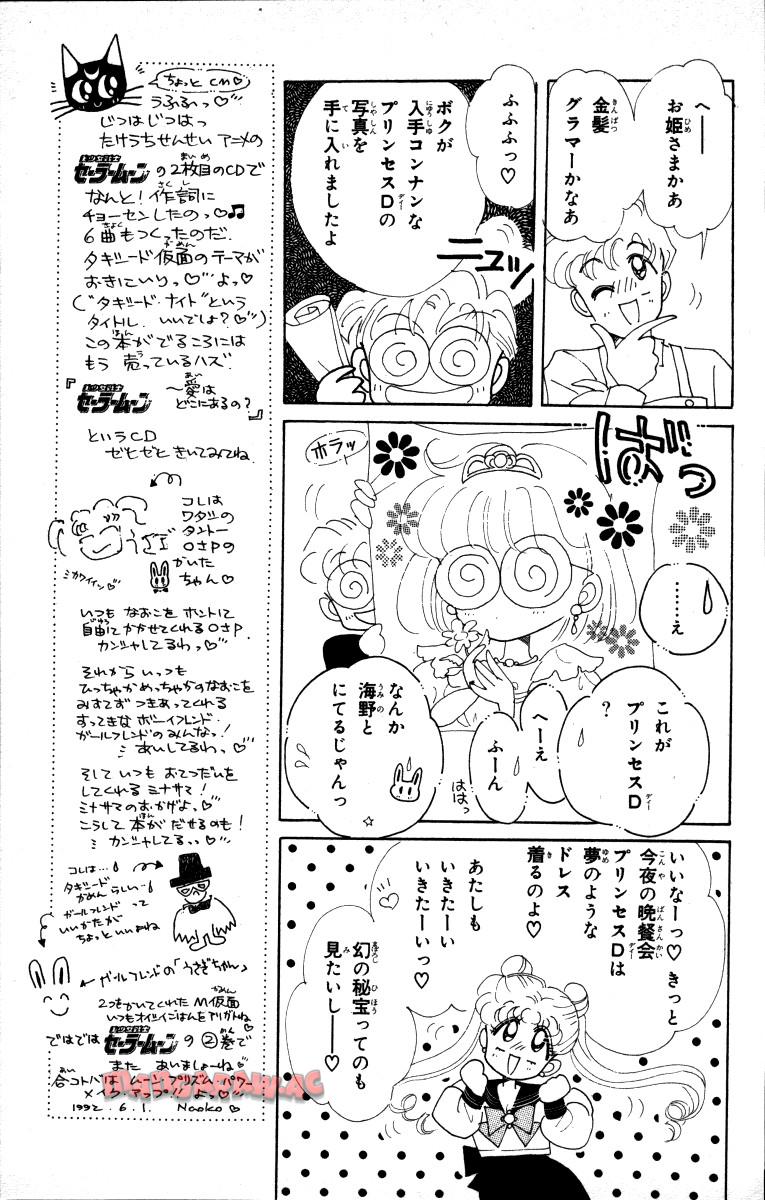 へ──
お姫さまかあ
金髪
グラマーかなあ
ふふふっ♡
ボクが
入手コンナンな
プリンセスDの
写真を
手に入れましたよ
ニュッ
ホラッ
……え
これが
プリンセスD
?
へーえ
ふーん
なんか
海野と
にてるじゃんっ
ははっ
いいなーっ♡きっと
今夜の晩餐会
プリンセスDは
夢のような
ドレス
着るのよ♡
あたしも
いきたーい
いきたーいっ♡
幻の秘宝ってのも
見たいしー♡
ちょっとCM♡
うふふへっ♡
じつはじつはっ
たけうちせんせい アニメの
美少女戦士
セーラームーンの2枚目のCDで
なんと!作詞に
チョーセンしたのっ♡♫
6曲もつくったのだ.
タキシード仮面のテーマが
おきにいりっ♡よっ♡
("タキシード・ナイト"という
タイトル. いいでしょ?♡)
この本がでるころには
もう 売っているハズ.
『美少女戦士
セーラームーン
～愛は
どこにあるの?』
というCD
ゼヒゼヒ きいてみてね.
コレは
ワタシの
タントー
おさPの
かいた
ちゃん♡
いつも なおこを ホントに
自由にかかせてくれるおさP.
カンシャしてるわっ♡
それから いっつも
ひっちゃかめっちゃかのなおこを
みすてず つきあってくれる
すってきな ボーイフレンド・
ガールフレンドのみんなっ!
あいしてるわっ♡
そして いつも おてつだいを
してくれる ミナサマ!
ミナサマのおかげよ♡
こうして 本が だせるのも!
カンシャしてる♡
コレは…
タキシード
かめん らしい…
ガールフレンド って
いいかたが
ちょっといいわね
ガールフレンドの「うさぎちゃん」
2つをかいてくれた M仮面
いつもオイシイごはんをアリガトね
ではでは 美少女戦士
セーラームーン の②巻で
また あいましょーね♡
1992.6.1. Naoko♡